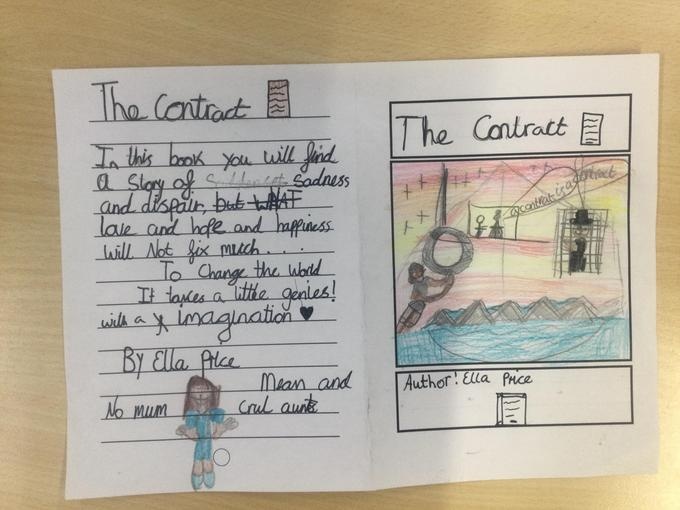 The Contract
In this book you will find
a story of Sadness
and dispair, but WHAT
love and hope and happiness
will Not fix much . . .
To Change the world
It takes a little genies!
with a imagination
By Ella Price
Mean and
No mum
Crul aunts
The Contract
a contract is a contract
Author! Ella Price